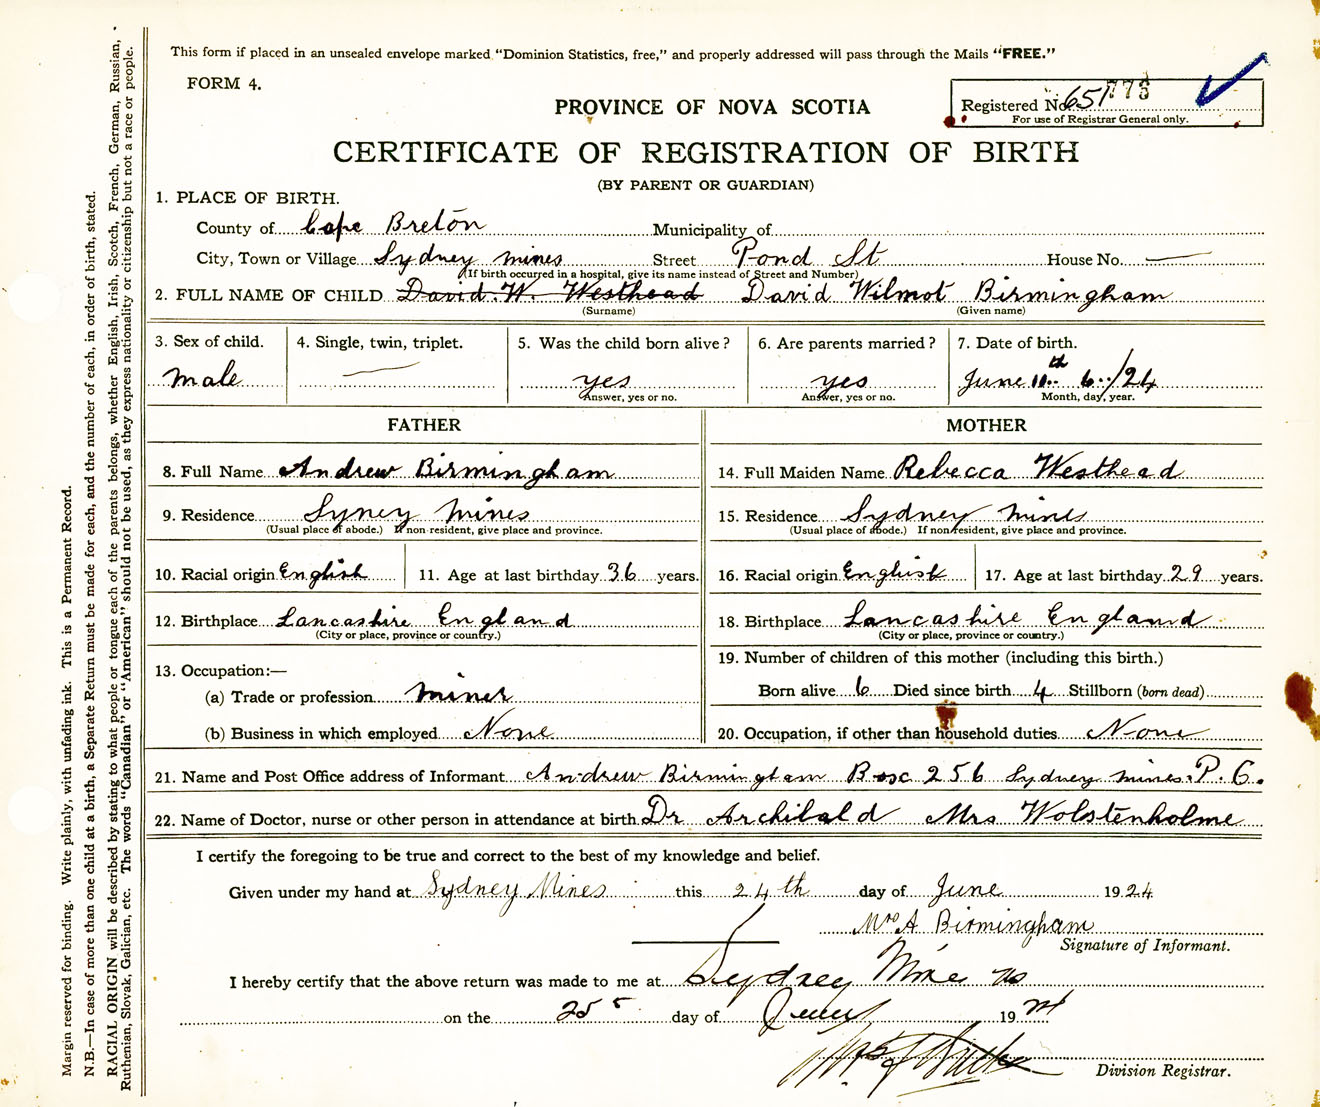 This form if placed in an unsealed envelope marked "Dominion Statistics, free," and properly addressed will pass through the Mails "FREE."
FORM 4.
PROVINCE OF NOVA SCOTIA
Registered No. 651 776
For use of Registrar General only.
CERTIFICATE OF REGISTRATION OF BIRTH
(BY PARENT OR GUARDIAN)
1. PLACE OF BIRTH.
County of Cape Breton Municipality of
City, Town or Village Sydney mines Street Pond St House No. —
(If birth occurred in a hospital, give its name instead of Street and Number)
2. FULL NAME OF CHILD David. W. Westhead David Wilmot Birmingham
(Surname) (Given name)
3. Sex of child. 4. Single, twin, triplet. 5. Was the child born alive? 6. Are parents married? 7. Date of birth.
male — yes yes June 11th 6/24
Answer, yes or no. Answer, yes or no. Month, day, year.
FATHER MOTHER
8. Full Name Andrew Birmingham 14. Full Maiden Name Rebecca Westhead
9. Residence Syney mines 15. Residence Sydney mines
(Usual place of abode.) If non-resident, give place and province. (Usual place of abode.) If non-resident, give place and province.
10. Racial origin English 11. Age at last birthday 36 years. 16. Racial origin English 17. Age at last birthday 29 years.
12. Birthplace Lancashire England 18. Birthplace Lancashire England
(City or place, province or country.) (City or place, province or country.)
13. Occupation:— 19. Number of children of this mother (including this birth.)
(a) Trade or profession miner Born alive 6 Died since birth 4 Stillborn (born dead)
(b) Business in which employed None 20. Occupation, if other than household duties None
21. Name and Post Office address of Informant Andrew Birmingham Box 256 Sydney mines. P. O.
22. Name of Doctor, nurse or other person in attendance at birth Dr Archibald Mrs Wolstenholme
I certify the foregoing to be true and correct to the best of my knowledge and belief.
Given under my hand at Sydney Mines this 24th day of June 1924
Mrs A Birmingham
Signature of Informant.
I hereby certify that the above return was made to me at Sydney Mines
on the 25 day of 19 24
Division Registrar.
Margin reserved for binding. Write plainly, with unfading ink. This is a Permanent Record.
N.B.—In case of more than one child at a birth, a Separate Return must be made for each, and the number of each, in order of birth, stated.
RACIAL ORIGIN will be described by stating to what people or tongue each of the parents belongs, whether English, Irish, Scotch, French, German, Russian,
Ruthenian, Slovak, Galician, etc. The words "Canadian" or "American" should not be used, as they express nationality or citizenship but not a race or people.